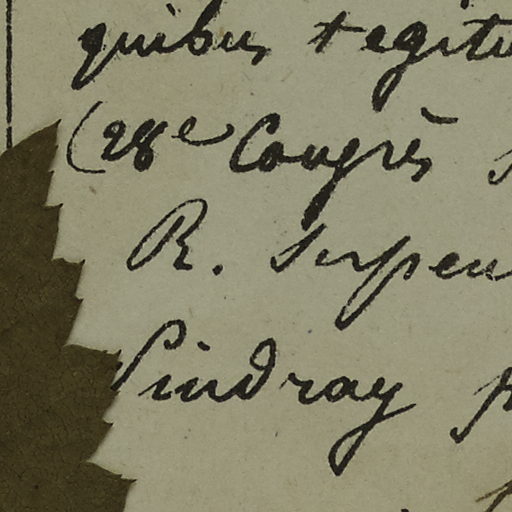 quibus tegitu
(28e Congrès s
R. serpen
Pindray p